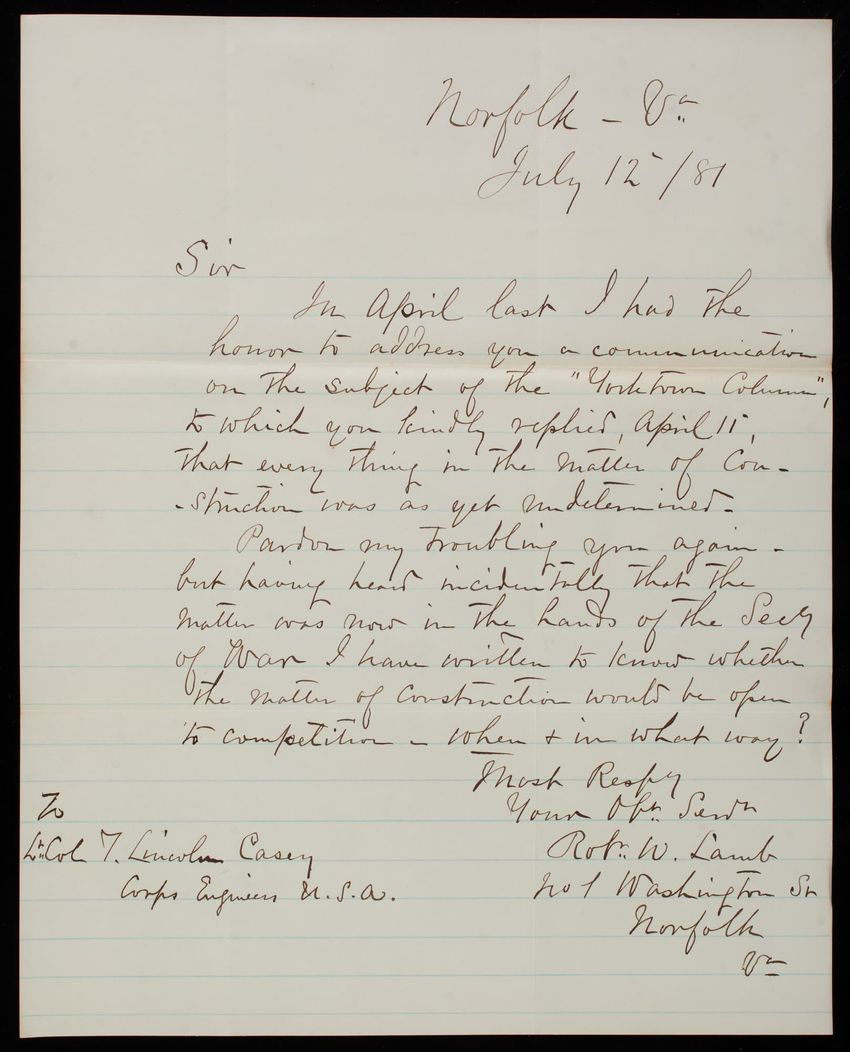 Norfolk - Va
July 12 / 81
Sir
In April last I had the
honor to address you a communication
on the subject of the "Yorktown Column",
to which you kindly replied, April 11,
that every thing in the matter of Con-
-struction was as yet undetermined-
Pardon my troubling you again -
but having heard incidentally that the
matter was now in the hands of the Secy
of War I have written to know whether
the matter of construction would be open
to competition - when & in what way?
Most Respy
Your Obt. Servt
To
Lt. Col T. Lincoln Casey
Corps Engineers U.S.A.
Robt. W. Lamb
No 1 Washington St
Norfolk
Va